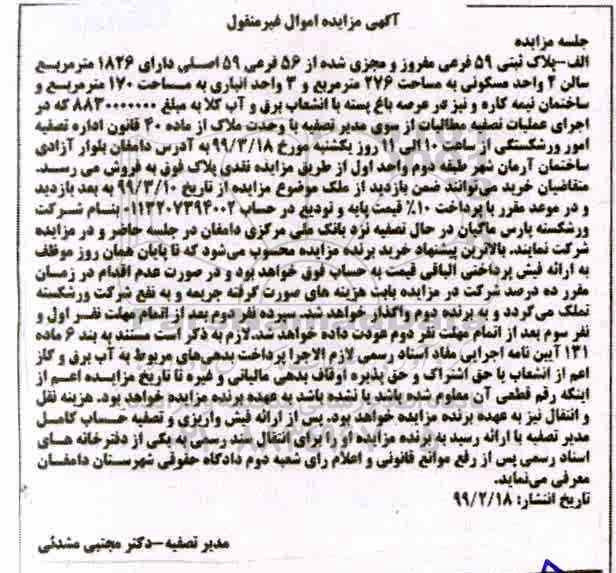 آگهی مزایده اموال غیرمنقول
جلسه مزایده
الف-پلاک ثبتی ۵۹ فرعی مفروز و مجزی شده از ۵۶ فرعی ۵۹ اصلی دارای ۱۸۲۶ مترمربع
سالن ۲ واحد مسکونی به مساحت ۲۷۶ مترمربع و ۳ واحد انباری به مساحت ۱۷۰ مترمربع و
ساختمان نیمه کاره و نیز در عرصه باغ پسته با انشعاب برق و آب کلا به مبلغ ۸۸۳۰۰۰۰۰۰۰ که در
اجرای عملیات تصفیه مطالبات از سوی مدیر تصفیه با وحدت ملاک از ماده ۴۰ قانون اداره تصفیه
امور ورشکستگی از ساعت ۱۰ الی ۱۱ روز یکشنبه مورخ ۹۹/۳/۱۸ به آدرس دامغان بلوار آزادی
ساختمان آرمان شهر طبقه دوم واحد اول از طریق مزایده نقدی پلاک فوق به فروش می رسد.
متقاضیان خرید می‌توانند ضمن بازدید از ملک موضوع مزایده از تاریخ ۹۹/۳/۱۰ به بعد بازدید
و در موعد مقرر با پرداخت ۱۰٪ قیمت پایه و تودیع در حساب ۰۱۱۳۲۰۷۳۹۴۰۰۲ بنام شرکت
ورشکسته پارس ماکیان در حال تصفیه نزد بانک ملی مرکزی دامغان در جلسه حاضر و در مزایده
شرکت نمایند. بالاترین پیشنهاد خرید برنده مزایده محسوب می‌شود که تا پایان همان روز موظف
به ارائه فیش پرداختی الباقی قیمت به حساب فوق خواهد بود و در صورت عدم اقدام در زمان
مقرر ده درصد شرکت در مزایده بابت هزینه های صورت گرفته جریمه و به نفع شرکت ورشکسته
تملک می‌گردد و به برنده دوم واگذار خواهد شد. سپرده نفر دوم بعد از اتمام مهلت نفر اول و
نفر سوم بعد از اتمام مهلت نفر دوم عودت داده خواهد شد.لازم به ذکر است مستند به بند ۶ ماده
۱۳۱ آیین نامه اجرایی مفاد اسناد رسمی لازم الاجرا پرداخت بدهی‌های مربوط به آب برق و گاز
اعم از انشعاب یا حق اشتراک و حق پذیره اوقاف بدهی مالیاتی و غیره تا تاریخ مزایده اعم از
اینکه رقم قطعی آن معلوم شده باشد یا نشده باشد به عهده برنده مزایده خواهد بود. هزینه نقل
و انتقال نیز به عهده برنده مزایده خواهد بود. پس از ارائه فیش واریزی و تصفیه حساب کامل
مدیر تصفیه با ارائه رسید به برنده مزایده او را برای انتقال سند رسمی به یکی از دفترخانه های
اسناد رسمی پس از رفع موانع قانونی و اعلام رای شعبه دوم دادگاه حقوقی شهرستان دامغان
معرفی می‌نماید.
تاریخ انتشار: ۹۹/۲/۱۸
مدیر تصفیه-دکتر مجتبی مشدئی